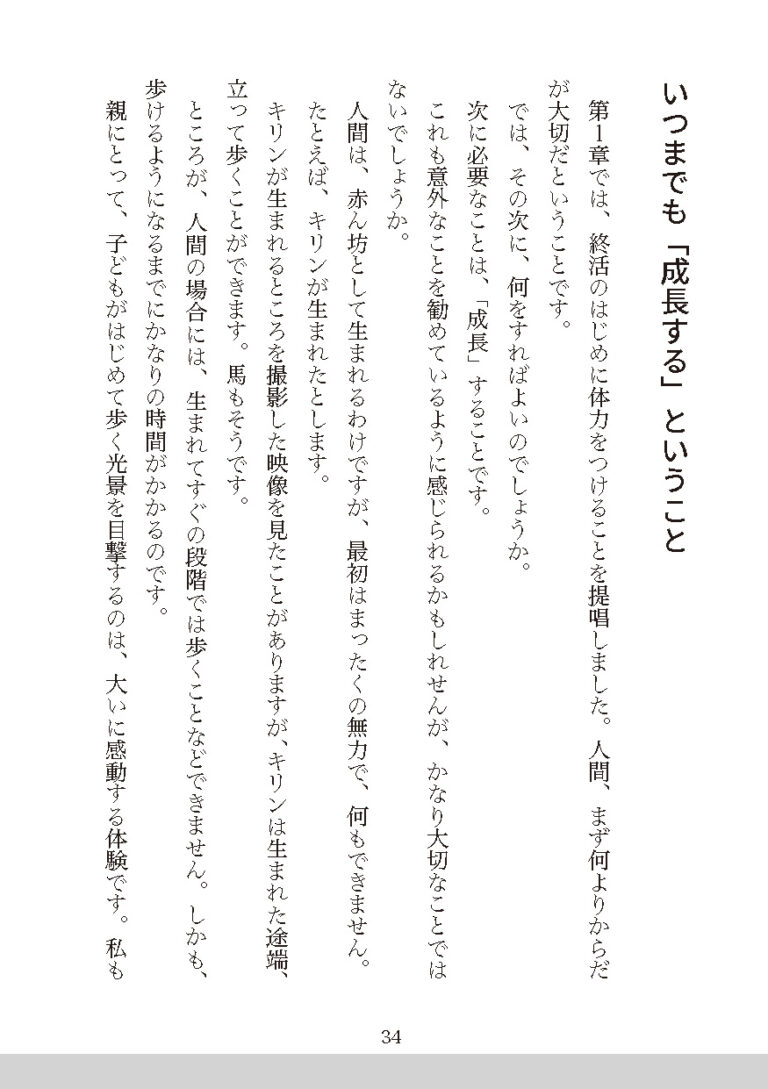 いつまでも「成長する」ということ
第1章では、終活のはじめに体力をつけることを提唱しました。人間、まず何よりからだ
が大切だということです。
では、その次に、何をすればよいのでしょうか。
次に必要なことは、「成長」することです。
これも意外なことを勧めているように感じられるかもしれせんが、かなり大切なことでは
ないでしょうか。
人間は、赤ん坊として生まれるわけですが、最初はまったくの無力で、何もできません。
たとえば、キリンが生まれたとします。
キリンが生まれるところを撮影した映像を見たことがありますが、キリンは生まれた途端、
立って歩くことができます。馬もそうです。
ところが、人間の場合には、生まれてすぐの段階では歩くことなどできません。しかも、
歩けるようになるまでにかなりの時間がかかるのです。
親にとって、子どもがはじめて歩く光景を目撃するのは、大いに感動する体験です。私も
34